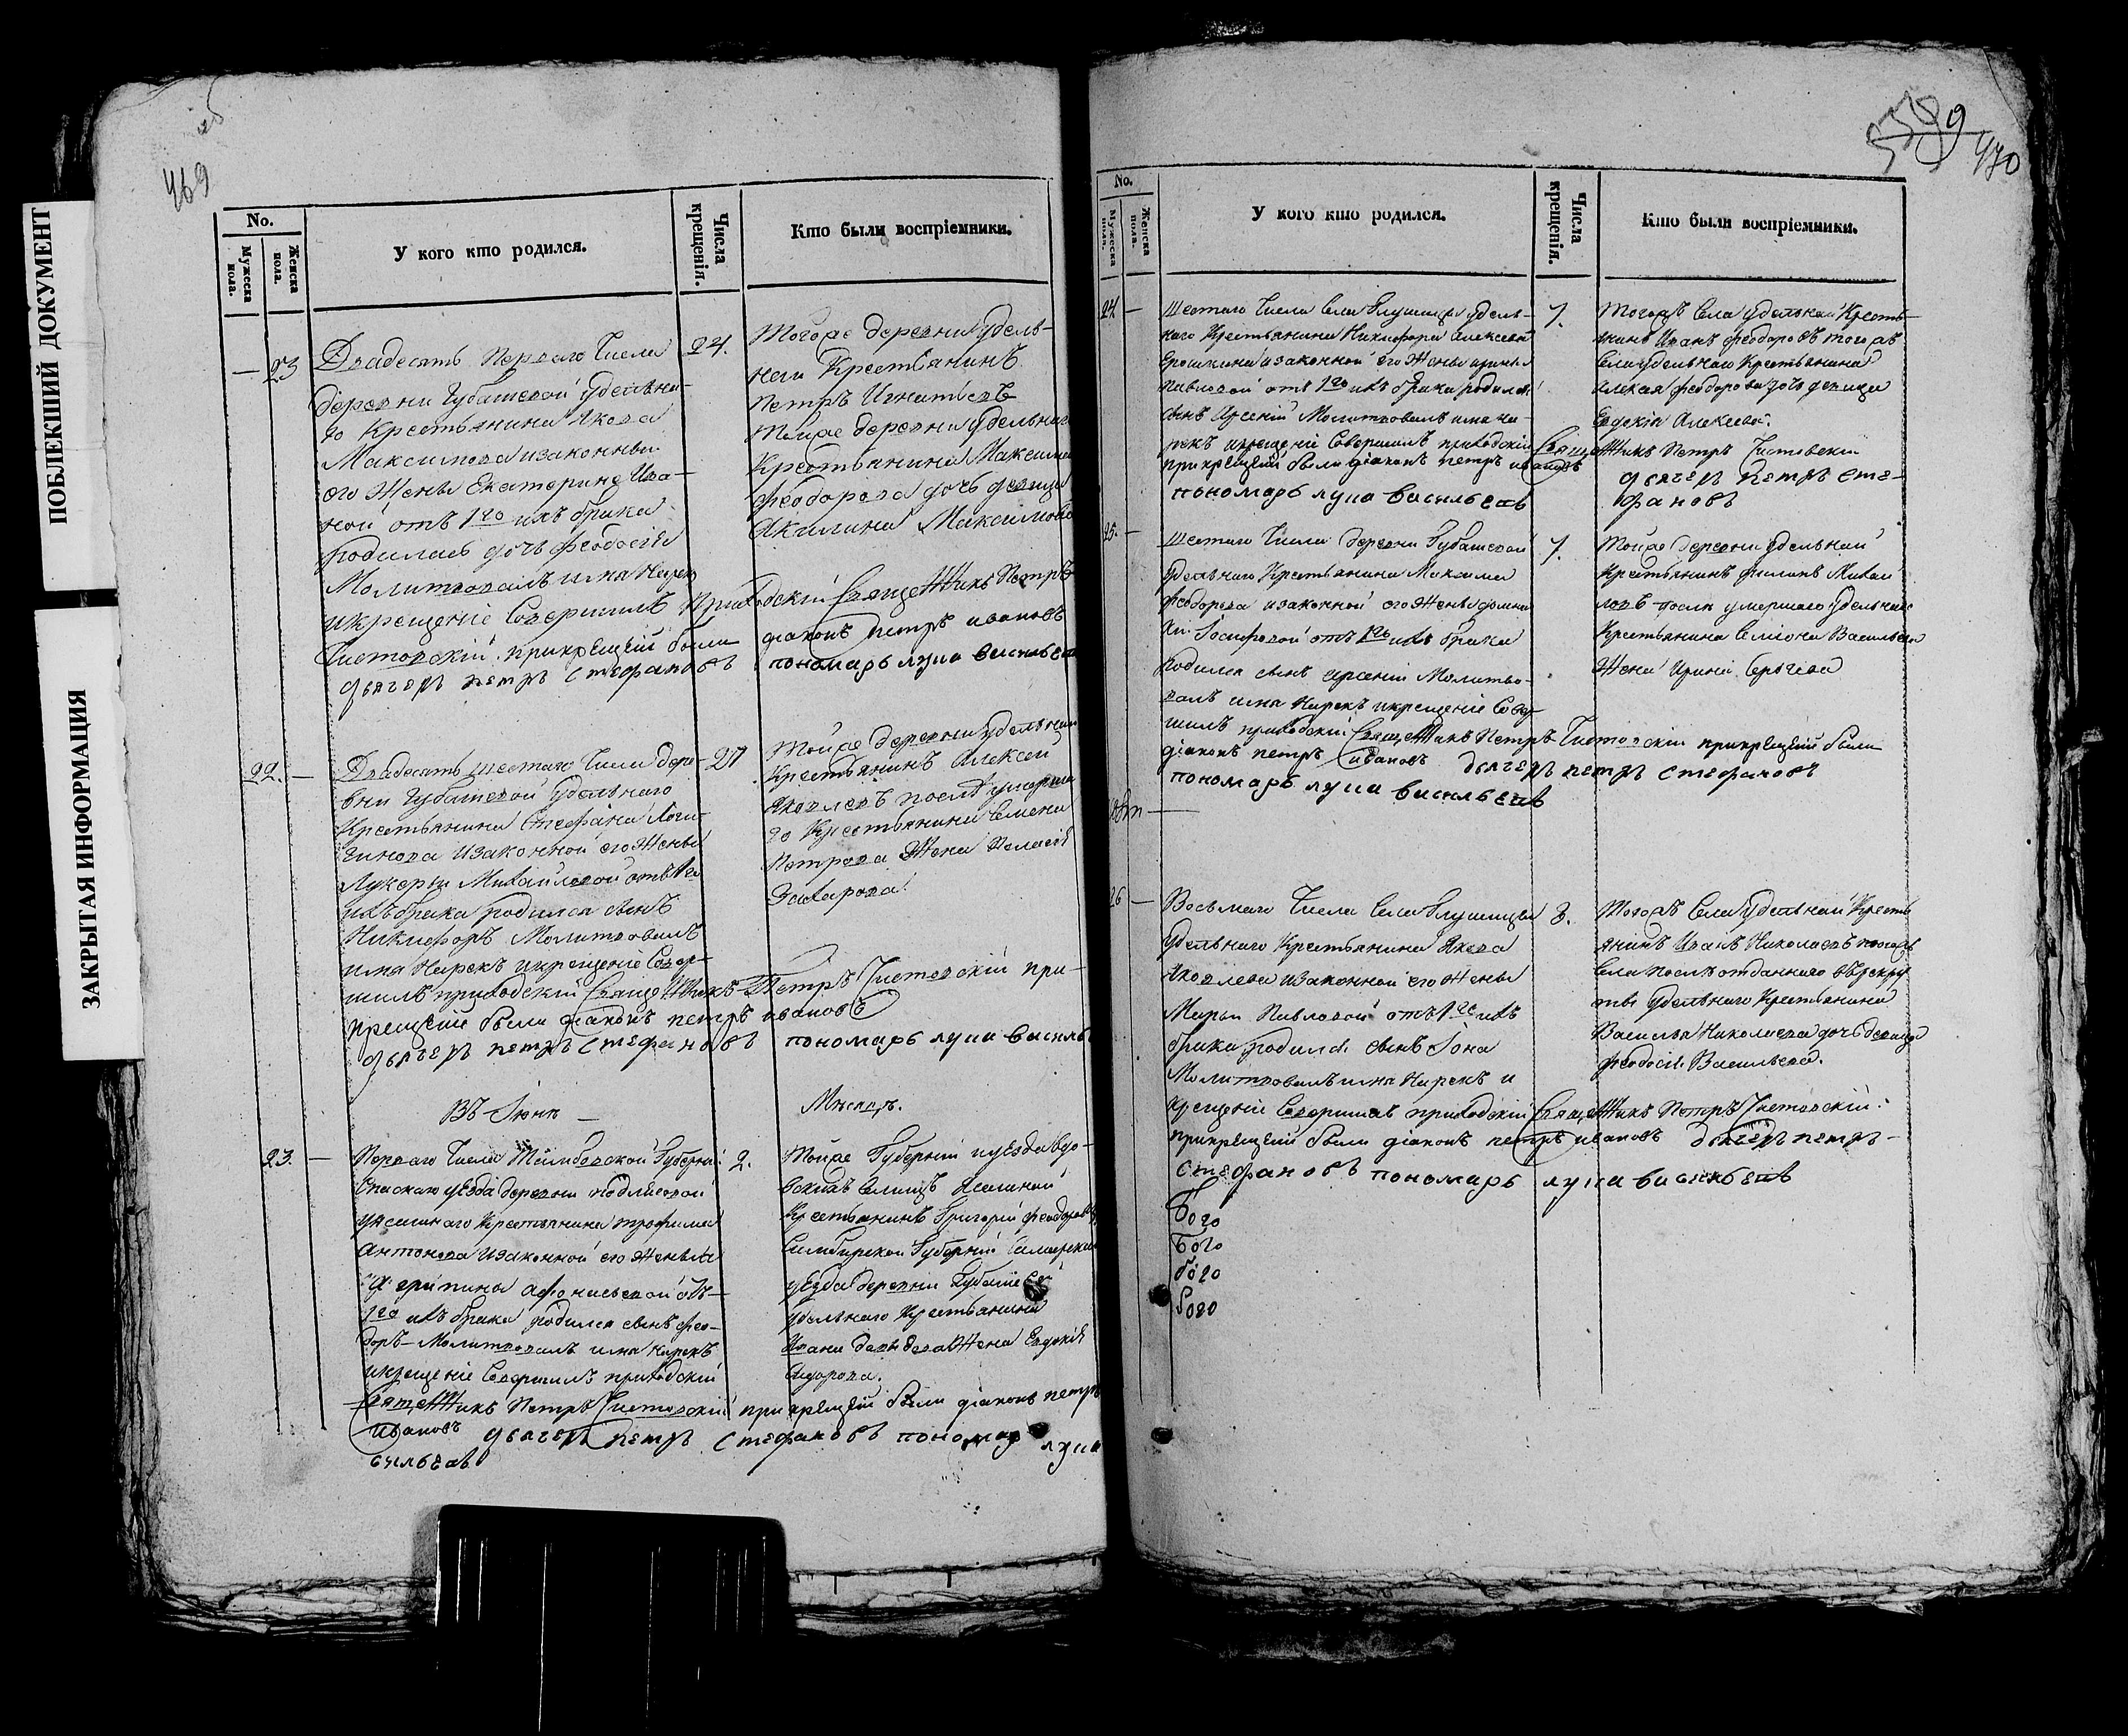 ПОБЛЕКШИЙ ДОКУМЕНТ
ЗАКРЫТАЯ ИНФОРМАЦИЯ
469
No.
Мужеска пола.
Женска пола.
У кого кто родился.
Числа крещенія.
Кто были воспріемники.
— 23
Двадесять Перваго Числа
деревни Губашевой Удельна-
го Крестьянина Якова
Максимова изаконныя
его Жены Екатерины Ива-
ной отъ 1го ихъ брака
родилась дочь Феодосія
Молитвовалъ имя Нарек
икрещеніе Совершилъ Приходскій СвящеННикъ Петръ
Чистовскій прикрещеіи были діаконъ петръ ивановъ
дьячекъ петръ стефановъ пономарь лупа васильевъ
24.
Тойже деревни удель-
ной Крестьянинъ
Петръ Игнатьевъ
Тойже деревни удельнаго
Крестьянина Максима
Феодорова дочь девица
Акилина Максимова
22. —
Двадесять шестаго Числа дере-
вни Губашевой Удельнаго
Крестьянина Стефана Логи-
нова изаконной его Жены
Лукерьи Михайловой отъ 1го
ихъ брака родился сынъ
Никифоръ Молитвовалъ
имя Нарек икрещеніе Совер-
шилъ приходскій СвящеННикъ Петръ Чистовскій при-
крещеіи были діаконъ петръ ивановъ
дьячекъ петръ стефановъ пономарь лупа василь
27
Тойже деревни удельный
Крестьянинъ Алексей
Яковлевъ после умерша
го Крестьянина Семена
Петрова Жена Пелагея
Захарова.
Въ Іюнѣ — Мѣсяцѣ.
23. —
Перваго Числа Тамбовской Губерніи
Спаскаго уезда деревни
Крестьянина трофима
Антонова изаконной его Жены
Агрипины Афонасьевой отъ
1го ихъ брака родился сынъ Фео-
доръ Молитвовалъ имя нарекъ
икрещеніе Совершилъ приходскій
СвящеННикъ Петръ Чистовскій прикрещеіи были діаконъ петръ
ивановъ дьячекъ петръ стефановъ пономарь лупа
сильевъ
2.
Тойже Губерніи иуезда
Крестьянинъ Григорій Феодоровъ
Симбирской Губерніи Самарскаго
уезда деревни Губашевой
удельнаго Крестьянина
Ивана Жена Евдокія
470
No.
Мужеска пола.
Женска пола.
У кого кто родился.
Числа крещенія.
Кто были воспріемники.
24 —
Шестаго Числа Села Глушицы удель-
наго Крестьянина Никифора Алексеева
Ерошкина изаконной его Жены ирины
Павловой отъ 1го ихъ брака родился
сынъ Арсеній Молитвовалъ имя на-
рекъ икрещеніе Совершилъ приходскій СвящеННикъ Петръ Чистовскій
прикрещеіи были діаконъ петръ ивановъ дьячекъ петръ сте-
пономарь лупа васильевъ фановъ
7.
Тогожъ Села удельной Кресть-
янинъ Иванъ Феодоровъ тогожъ
Села удельнаго Крестьянина
Алексея Феодорова дочь девица
Евдокія Алексеева.
25. —
Шестаго Числа деревни Губашевой
Удельнаго Крестьянина Максима
Феодорова изаконной его Жены
Іосифовой отъ 1го ихъ брака
родился сынъ арсеній Молитво-
валъ имя Нарекъ икрещеніе Совер-
шилъ приходскій СвящеННикъ Петръ Чистовскій прикрещеіи были
діаконъ петръ ивановъ дьячекъ петръ стефановъ
пономарь лупа васильевъ
7.
Тойже деревни удельной
Крестьянинъ Филипъ Михай-
ловъ после умершаго удельнаго
Крестьянина Симеона Васильева
Жена Ирина Сергеева
26 —
Восьмаго Числа Села Глушицы
Удельнаго Крестьянина Якова
Яковлева изаконной его Жены
Марьи Павловой отъ 1го ихъ
брака родился сынъ Іона
Молитвовалъ имя Нарекъ и
Крещеніе Совершилъ приходскій СвящеННикъ Петръ Чистовскій
прикрещеіи были діаконъ петръ ивановъ дьячекъ петръ
стефановъ пономарь лупа васильевъ
Тогожъ Села Удельной Кресть
янинъ Иванъ Николаевъ тогожъ
Села после отданнаго въ рекру
ты Удельнаго Крестьянина
Василья Николаева дочь девица
Феодосія Васильева.